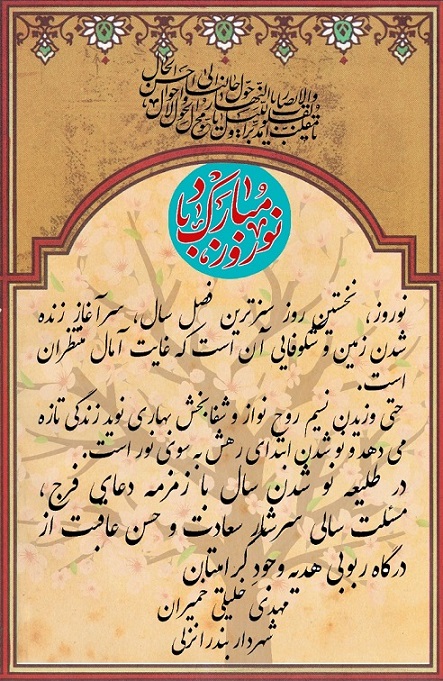 یا مقلب القلوب والابصار یا مدبر اللیل والنهار یا محول الحول والاحوال حول حالنا الی احسن الحال
نوروز مبارک باد
نوروز، نخستین روز سبزترین فصل سال، سرآغاز زنده
شدن زمین و شکوفایی آن است که غایت آمال منتظران
است.
حتی وزیدن نسیم روح نواز و شفابخش بهاری نوید زندگی تازه
می دهد و نو شدن ابتدای رهش به سوی نور است.
در طلیعه نو شدن سال با زمزمه دعایی فرج،
مسئلت سالی سرشار سعادت و حسن عاقبت از
درگاه ربوبی هدیه وجود گرامیتان
مهدی خلیلی خمیران
شهردار بندرانزلی